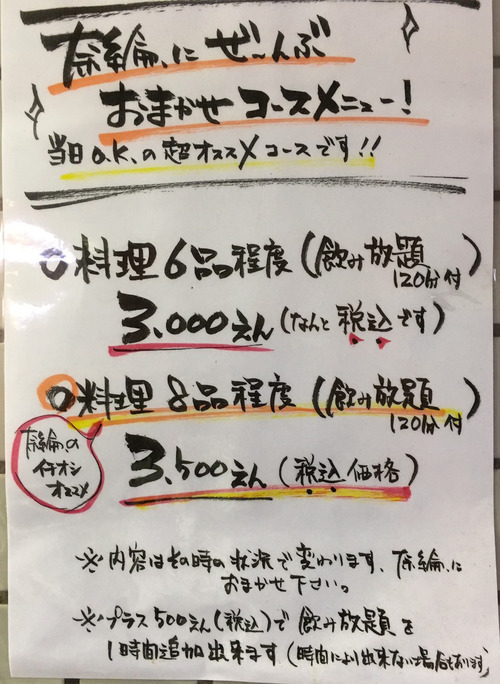 奈綸、に ぜ〜んぶ
おまかせ コースメニュー!
当日o.k.の超オススメコースです!!
○料理6品程度(飲み放題
120分付)
3,000えん(なんと税込です)
○料理8品程度(飲み放題
120分付)
奈綸、の
イチオシ
オススメ
3,500えん(税込価格)
※内容はその時の状況で変わります、奈綸、に
おまかせ下さい。
※プラス500えん(税込)で飲み放題を
1時間追加出来ます(時間により出来ない場合もあります)